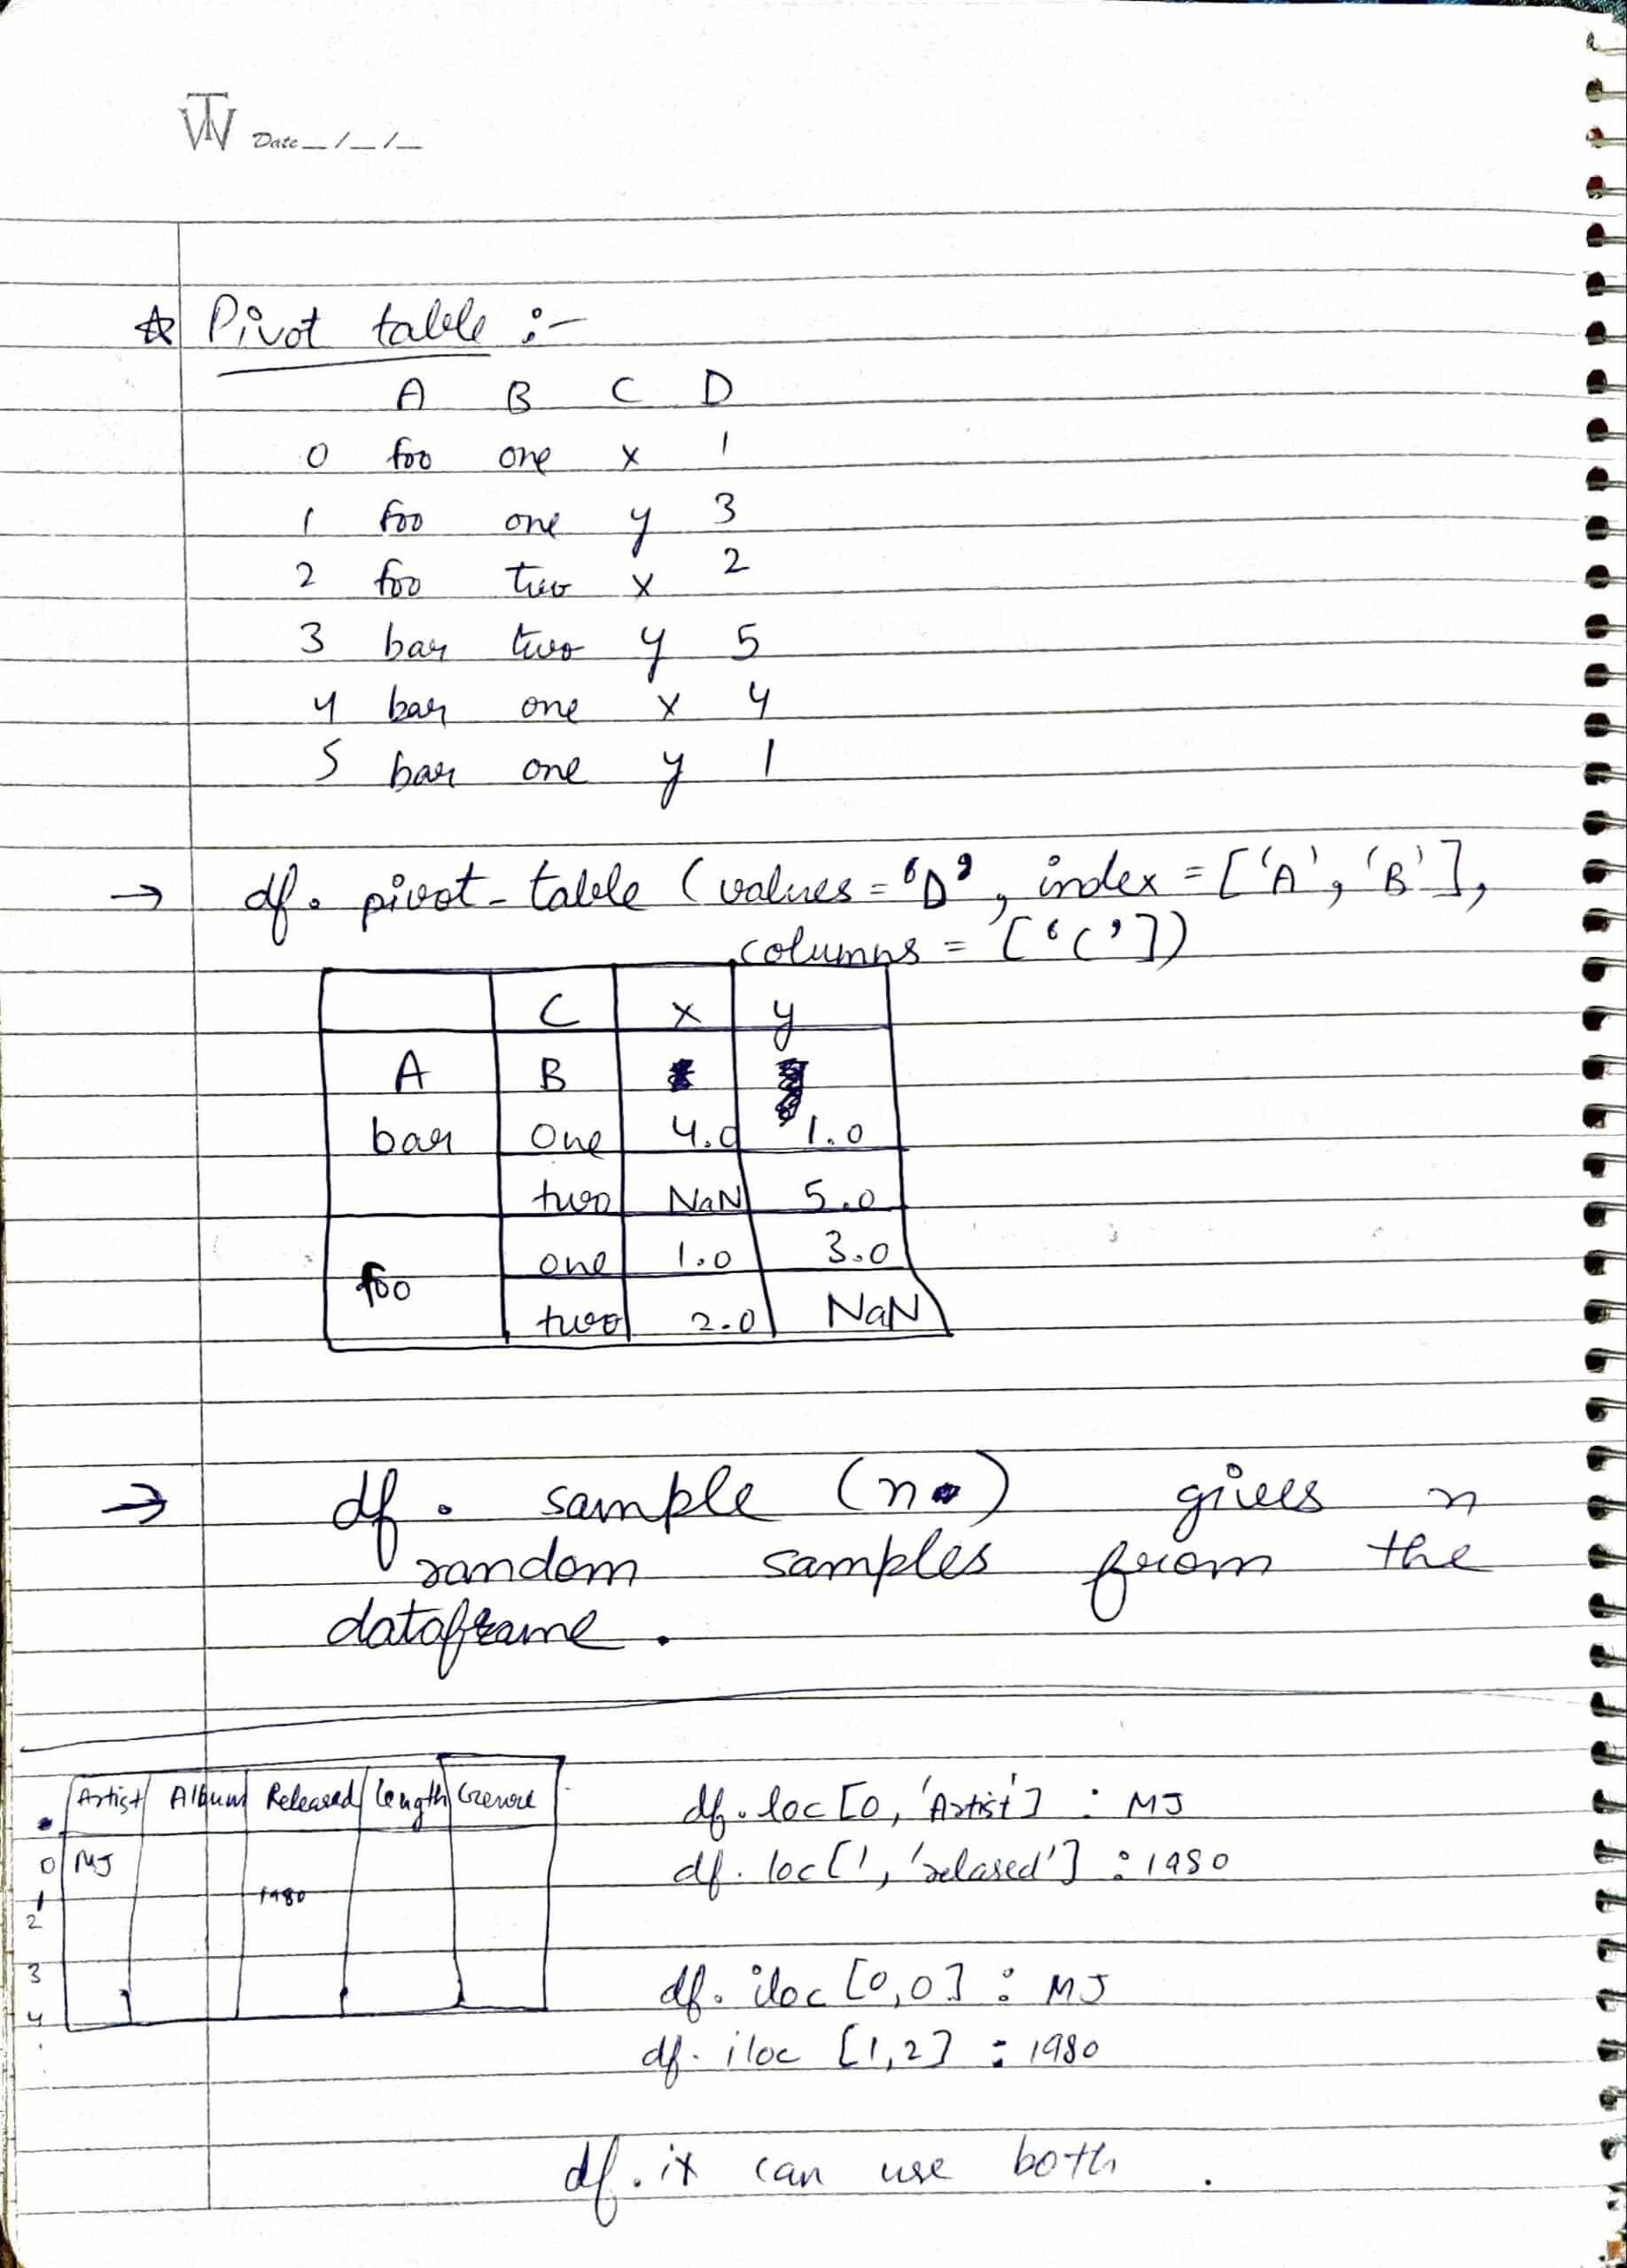 TW Date _/_/_
☆ Pivot table :-
A B C D
0 foo one x 1
1 foo one y 3
2 foo two x 2
3 bar two y 5
4 bar one x 4
5 bar one y 1
→ df. pivot_table (values = 'D', index = ['A', 'B'],
columns = ['C'])
C x y
A B
bar one 4.0 1.0
two NaN 5.0
one 1.0 3.0
foo
two 2.0 NaN
→ df. sample (n) gives n
random samples from the
dataframe.
Artist Album Released Length Genre
0 MJ
1 1980
2
3
4
df.loc [0, 'Artist'] : MJ
df. loc [1, 'relased'] : 1980
df. iloc [0,0] : MJ
df. iloc [1,2] : 1980
df. ix can use both .